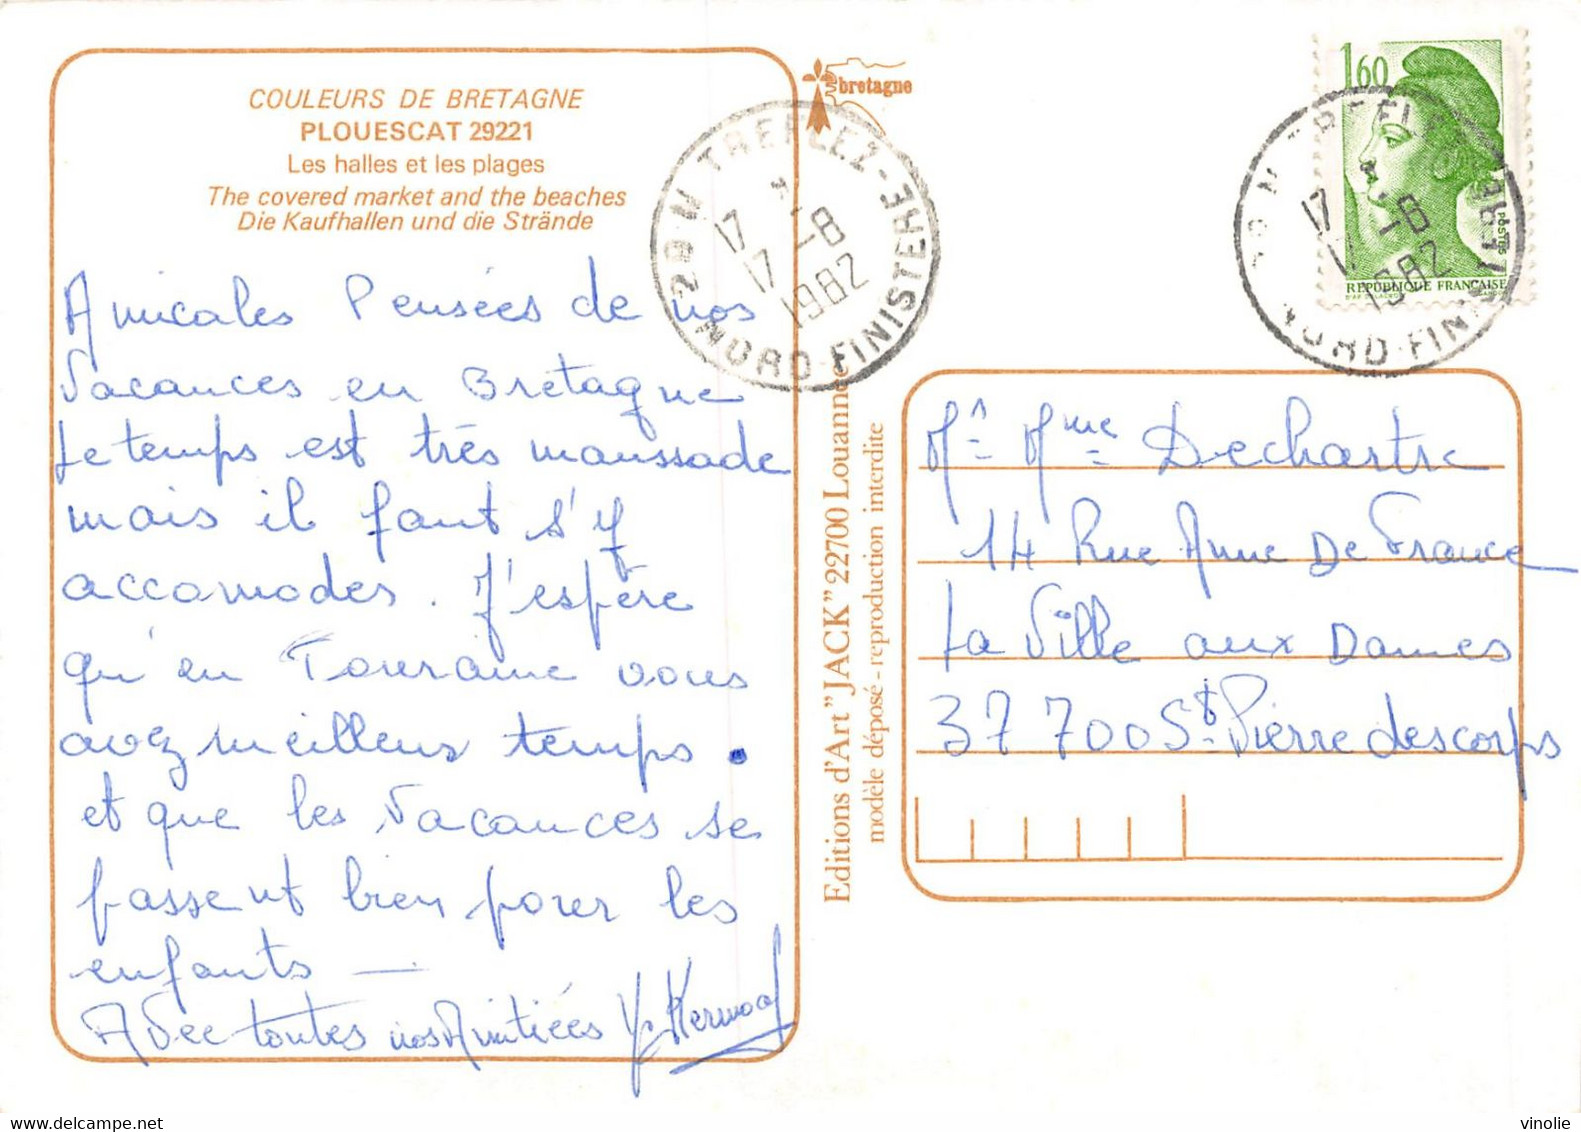 COULEURS DE BRETAGNE
PLOUESCAT 29221
Les halles et les plages
The covered market and the beaches
Die Kaufhallen und die Strände
Amicales Pensées de nos
Vacances en Bretagne
Le temps est très maussade
mais il faut s'y
accomodes. J'espère
qu'en Touraine vous
avez meilleurs temps.
et que les Vacances se
passent bien pour les
enfants —
Avec toutes nos Amitiées
bretagne
29 N TREFLEZ-
17 -8
17
1982
NORD-FINISTERE
Editions d'Art "JACK" 22700 Louannec
modèle déposé - reproduction interdite
1,60
POSTES
REPUBLIQUE FRANÇAISE
17 -8
1982
NORD-FINI
Mr Mme Dechartre
14 Rue Anne De France
La Ville aux Dames
37700 St Pierre des corps
vinolie